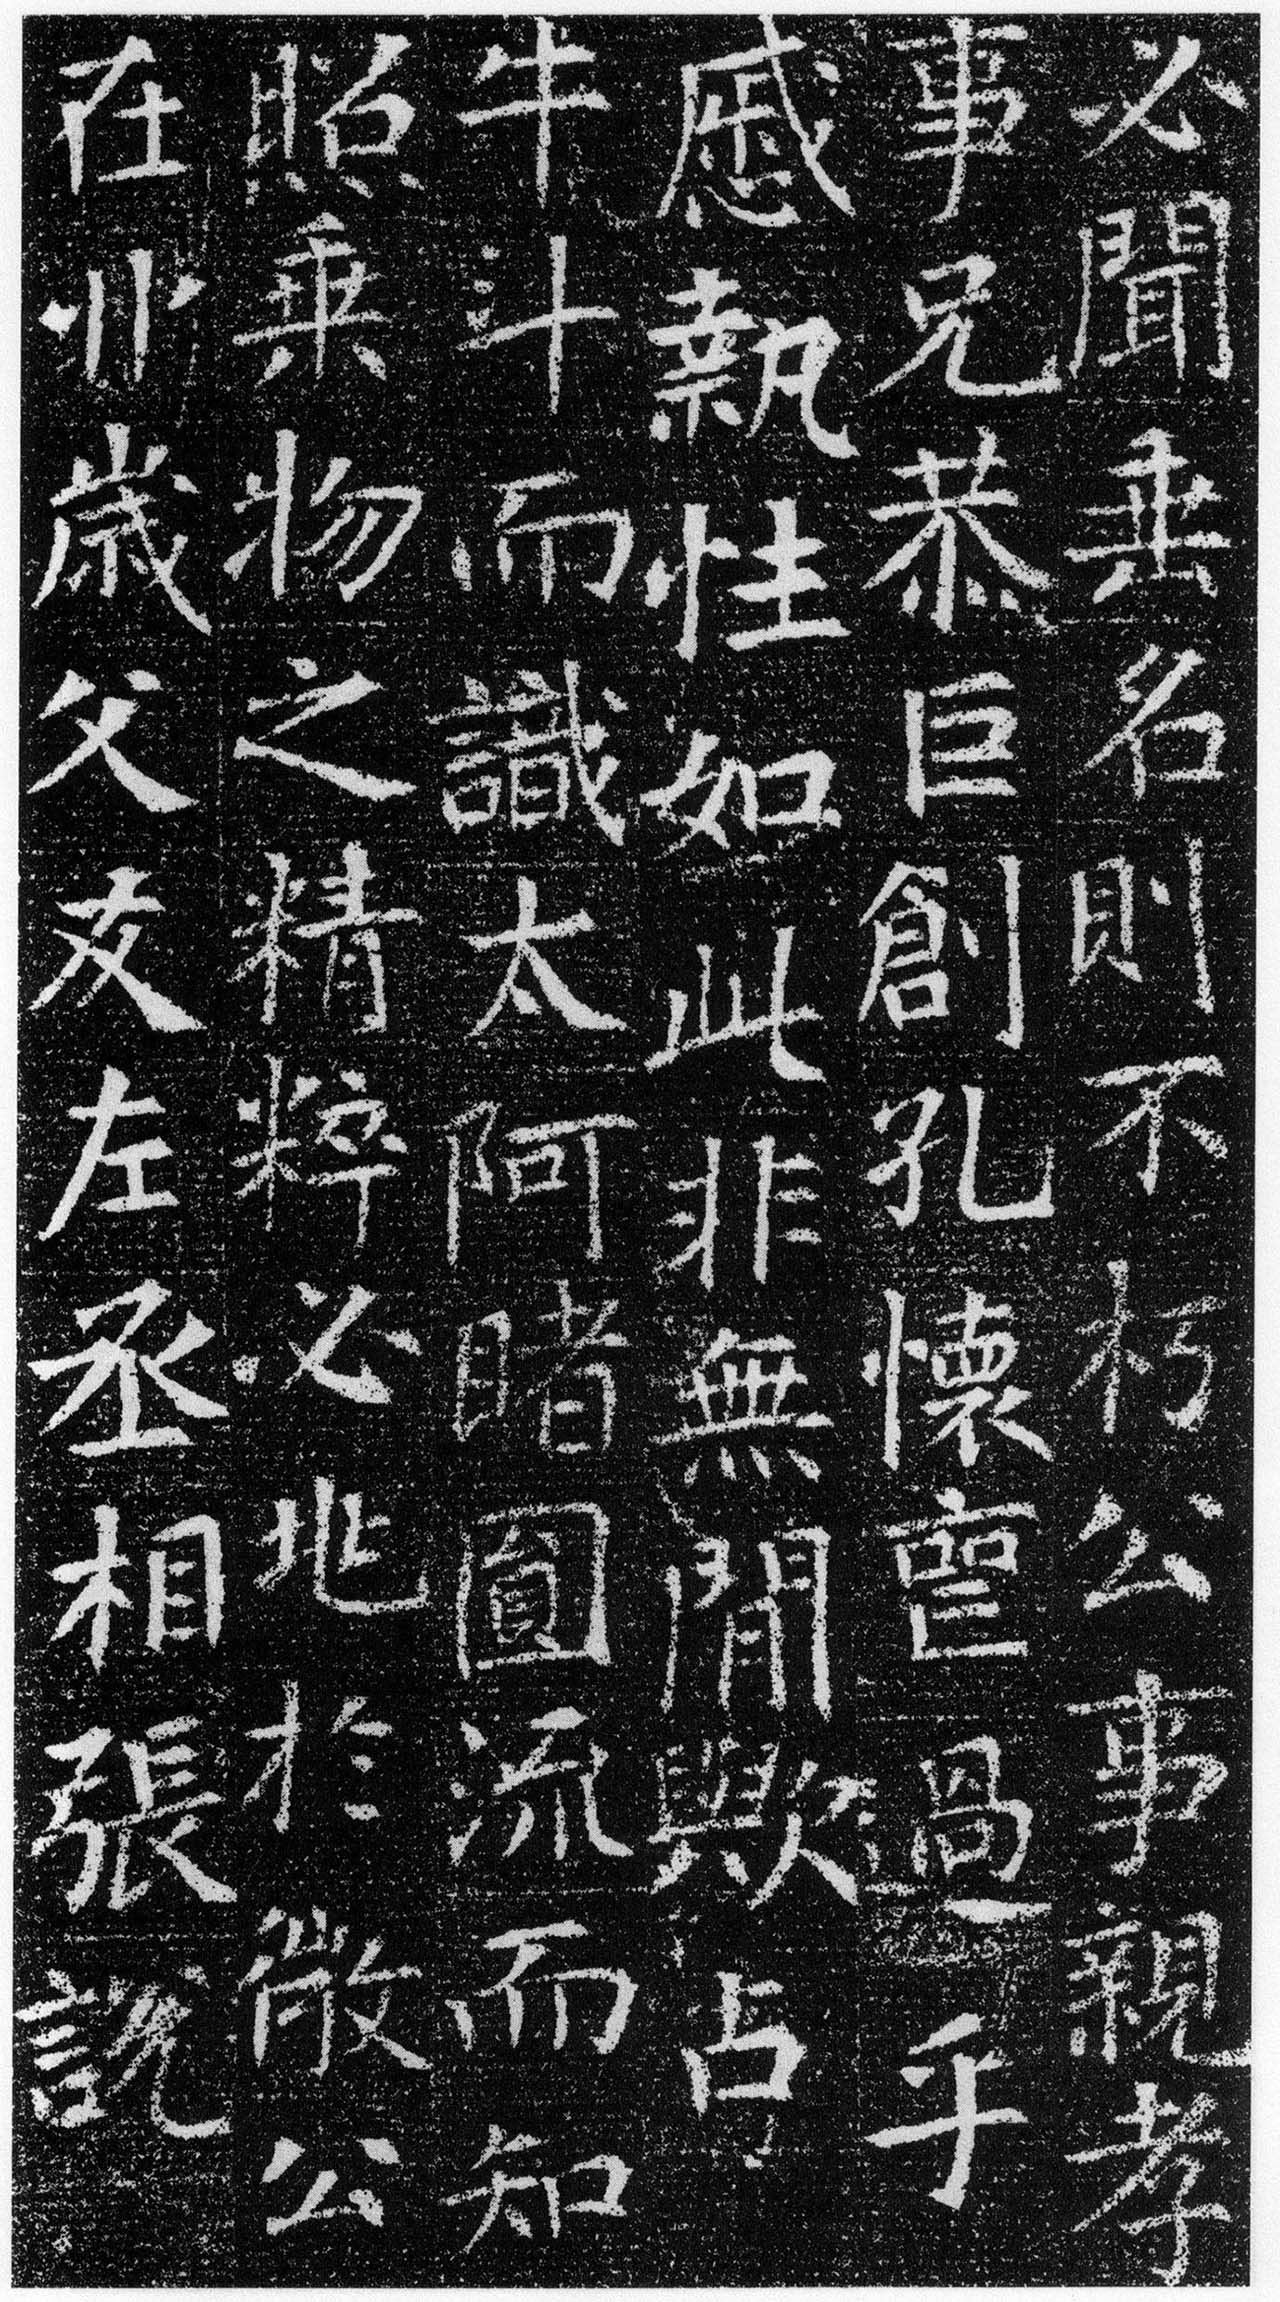 必聞垂名則不朽公事親孝
事兄恭巨創孔懷亶過乎
慼執性如此非無間歟占
牛斗而識太阿睹圓流而知
照乘物之精粹必兆於微公
在丱歲父友左丞相張說